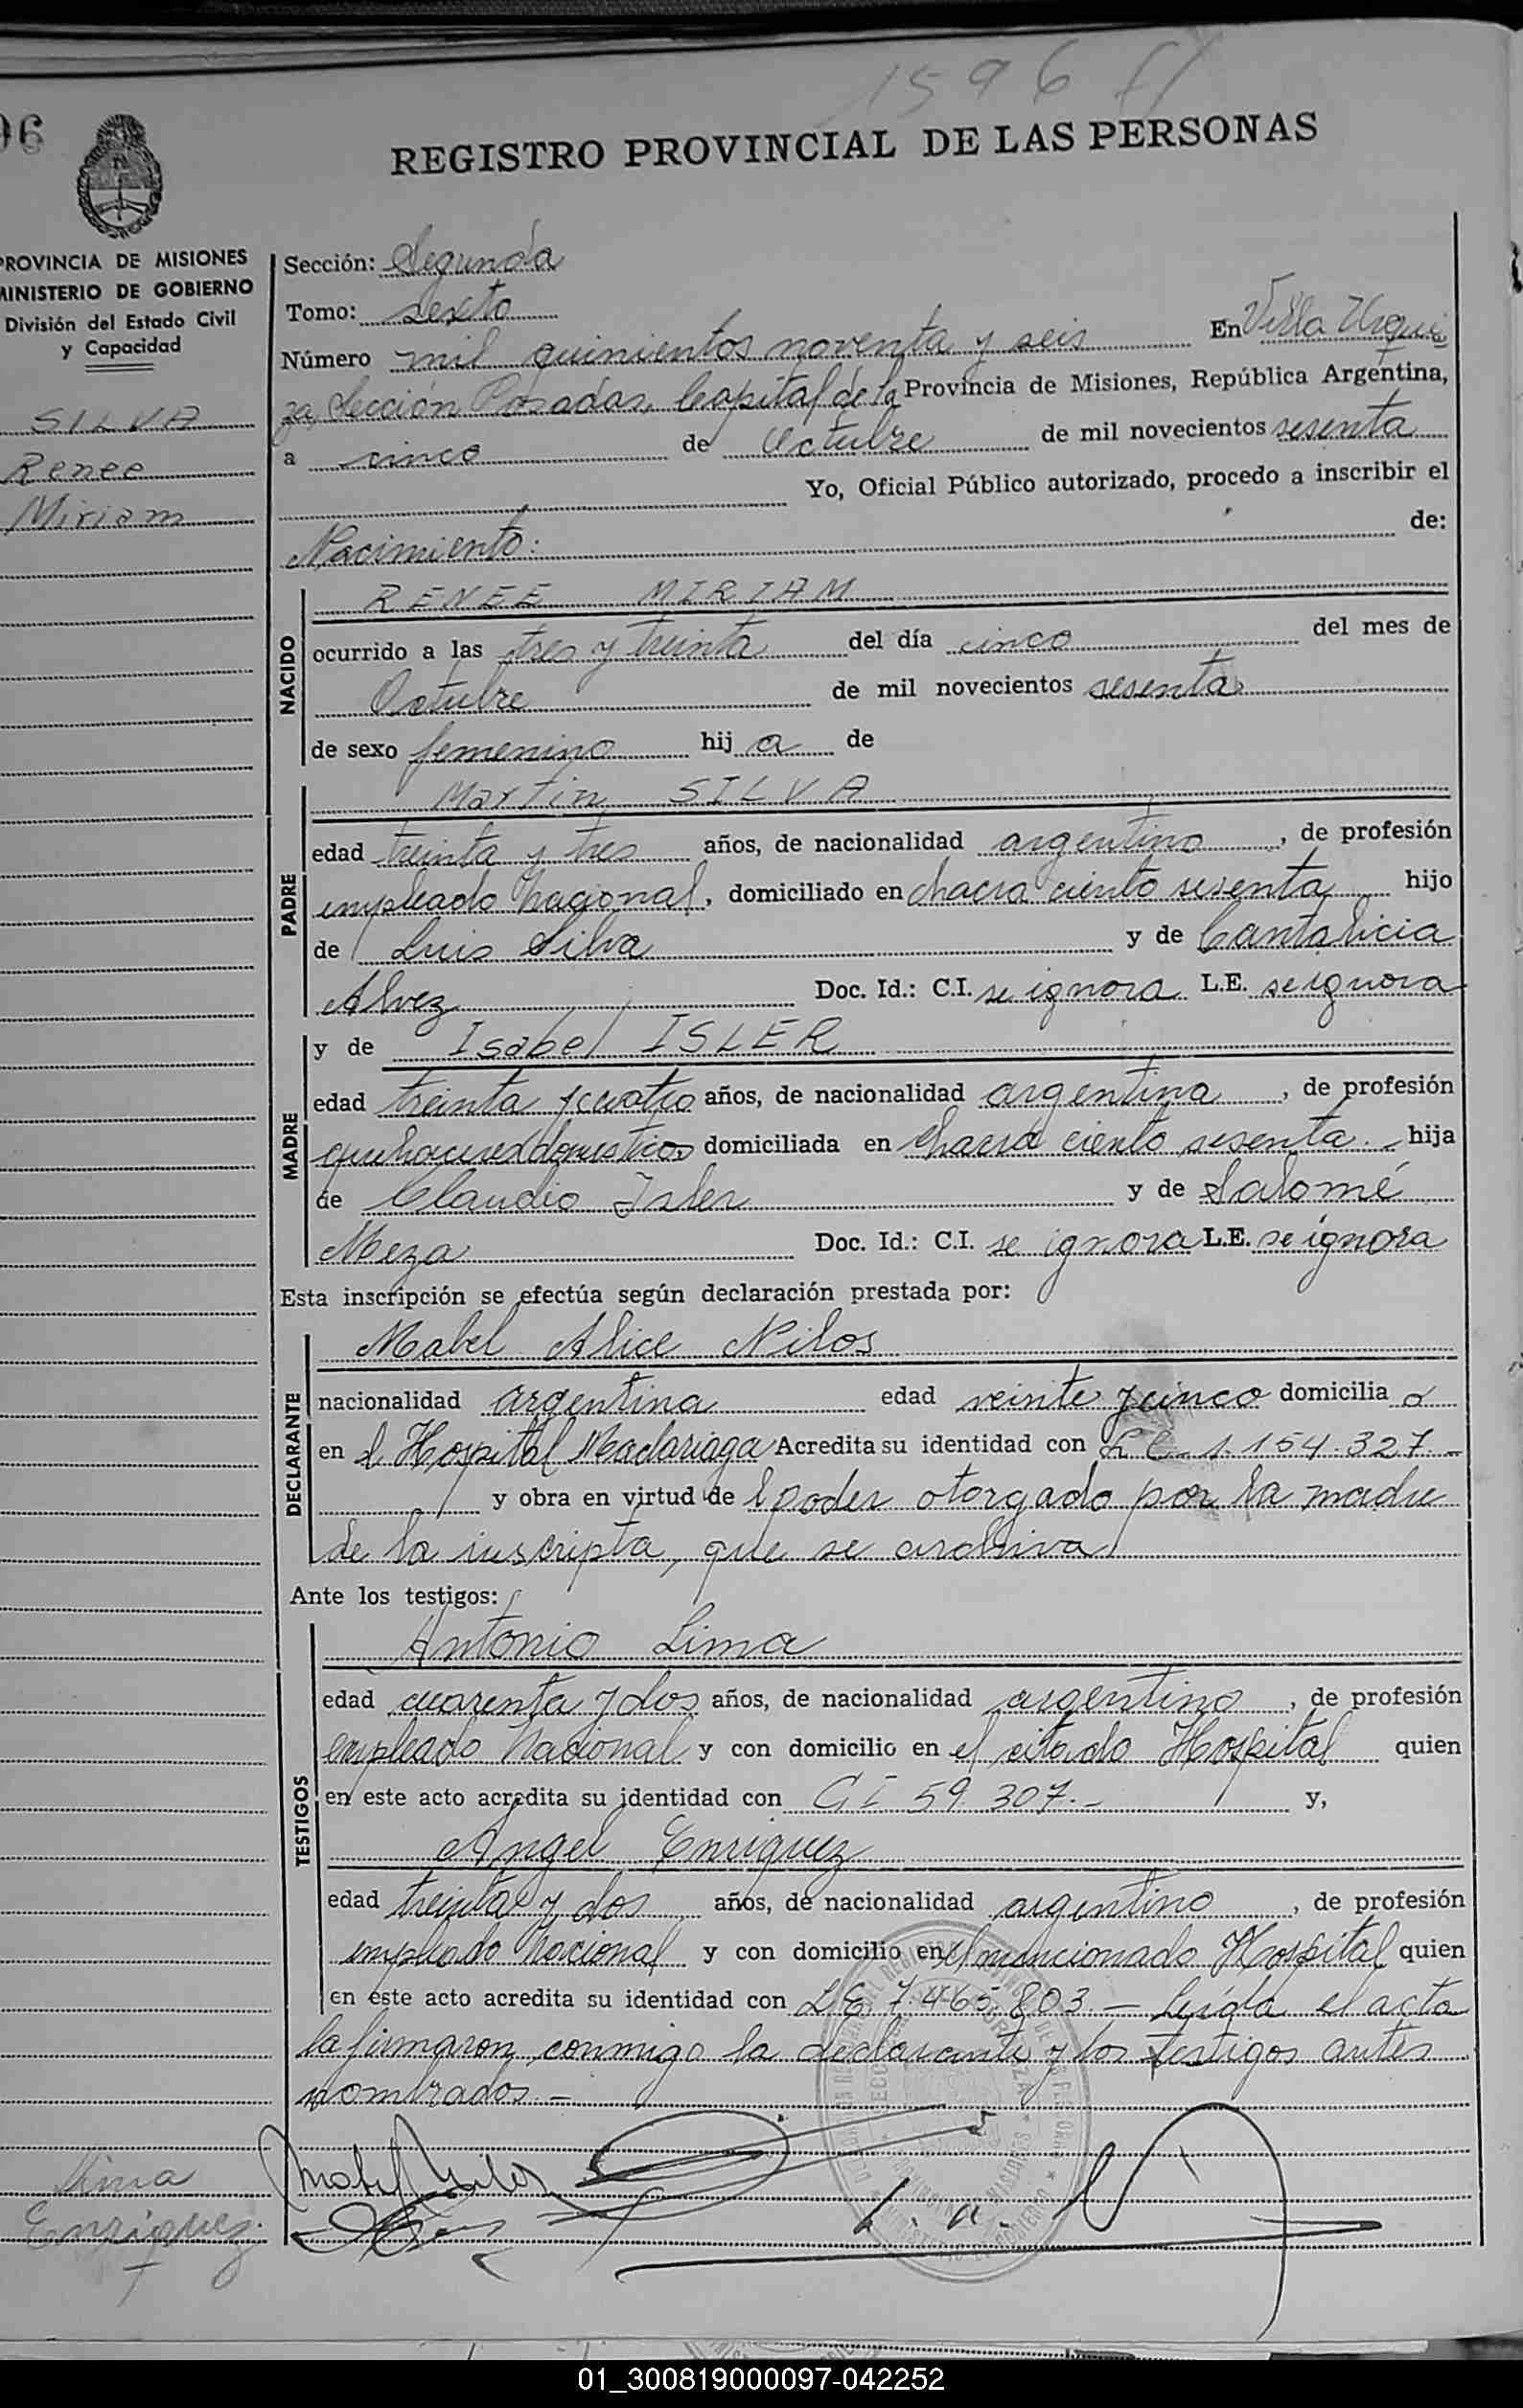 1596 f/
96
REGISTRO PROVINCIAL DE LAS PERSONAS
PROVINCIA DE MISIONES
MINISTERIO DE GOBIERNO
División del Estado Civil
y Capacidad
SILVA
Renee
Miriam
Sección: Segunda
Tomo: Sexto
Número mil quinientos noventa y seis En Villa Urqui
za, Sección Posadas, Capital de la Provincia de Misiones, República Argentina,
a cinco de Octubre de mil novecientos sesenta
Yo, Oficial Público autorizado, procedo a inscribir el
Nacimiento: de:
NACIDO
RENEE MIRIAM
ocurrido a las tres y treinta del día cinco del mes de
Octubre de mil novecientos sesenta
de sexo femenino hij a de
PADRE
Martin SILVA
edad treinta y tres años, de nacionalidad argentino, de profesión
empleado Nacional, domiciliado en chacra ciento sesenta hijo
de Luis Silva y de Cantalicia
Alvez Doc. Id.: C.I. se ignora L.E. se ignora
MADRE
y de Isabel ISLER
edad treinta y cuatro años, de nacionalidad argentina, de profesión
quehaceres domesticos domiciliada en chacra ciento sesenta.- hija
de Claudio Isler y de Salomé
Meza Doc. Id.: C.I. se ignora L.E. se ignora
Esta inscripción se efectúa según declaración prestada por:
DECLARANTE
Mabel Alice Nilos
nacionalidad argentina edad veinte y cinco domicilia d
en el Hospital Madariaga Acredita su identidad con L C 1.154.327.-
y obra en virtud de l poder otorgado por la madre
de la inscripta, que se archiva
Ante los testigos:
TESTIGOS
Antonio Lima
edad cuarenta y dos años, de nacionalidad argentino, de profesión
empleado Nacional y con domicilio en el citado Hospital quien
en este acto acredita su identidad con C I 59.307.- y,
Angel Enriquez
edad treinta y dos años, de nacionalidad argentino, de profesión
empleado Nacional y con domicilio en el mencionado Hospital quien
en este acto acredita su identidad con L E 7.465.803 - Leída el acta
la firmaron conmigo la declarante y los testigos antes
nombrados.-
Lima
Enriquez.
01_300819000097-042252